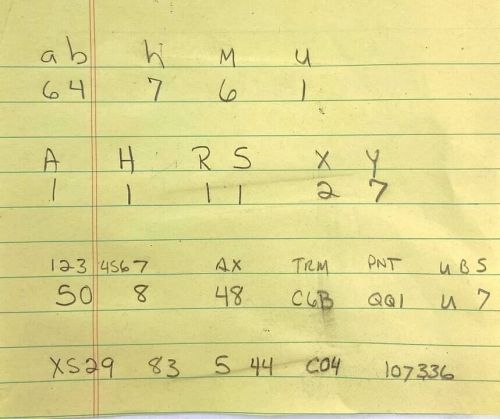 a b h M u
6 4 7 6 1
A H R S X Y
1 1 1 1 2 7
123 4567 AX TRM PNT U B S
50 8 48 C6B QQ1 U 7
XS29 83 5 44 C04 107336